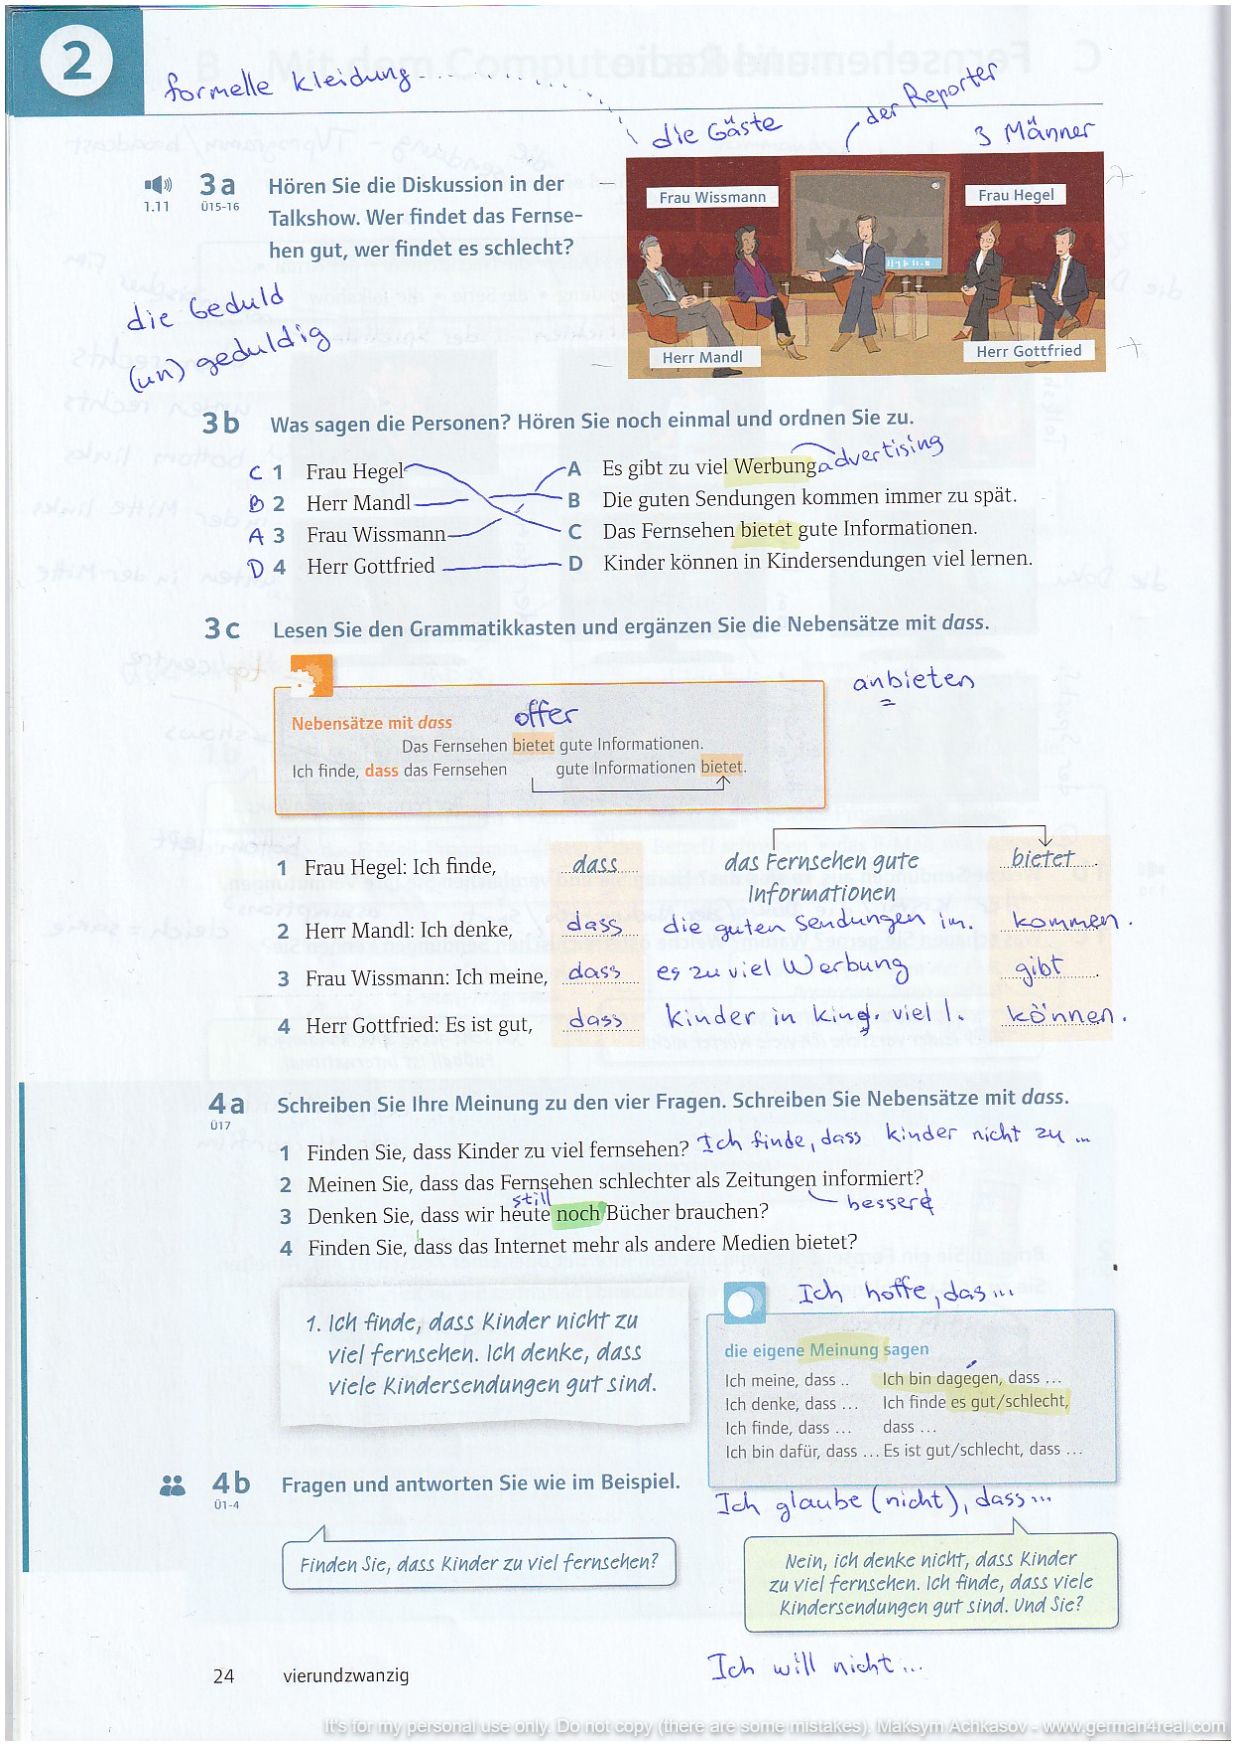 2
formelle Kleidung
die Gäste
der Reporter
3 Männer
1.11
3a
Ü15-16
Hören Sie die Diskussion in der
Talkshow. Wer findet das Fernse-
hen gut, wer findet es schlecht?
Frau Wissmann
Frau Hegel
Herr Mandl
Herr Gottfried
die Geduld
(un) geduldig
3b Was sagen die Personen? Hören Sie noch einmal und ordnen Sie zu.
C 1 Frau Hegel
B 2 Herr Mandl
A 3 Frau Wissmann
D 4 Herr Gottfried
A Es gibt zu viel Werbung advertising
B Die guten Sendungen kommen immer zu spät.
C Das Fernsehen bietet gute Informationen.
D Kinder können in Kindersendungen viel lernen.
3c Lesen Sie den Grammatikkasten und ergänzen Sie die Nebensätze mit dass.
anbieten
Nebensätze mit dass
offer
Das Fernsehen bietet gute Informationen.
Ich finde, dass das Fernsehen gute Informationen bietet.
1 Frau Hegel: Ich finde, dass das Fernsehen gute bietet.
Informationen
2 Herr Mandl: Ich denke, dass die guten Sendungen im. kommen.
3 Frau Wissmann: Ich meine, dass es zu viel Werbung gibt.
4 Herr Gottfried: Es ist gut, dass kinder in kind. viel l. können.
4a Schreiben Sie Ihre Meinung zu den vier Fragen. Schreiben Sie Nebensätze mit dass.
Ü17
1 Finden Sie, dass Kinder zu viel fernsehen? Ich finde, dass kinder nicht zu ...
2 Meinen Sie, dass das Fernsehen schlechter als Zeitungen informiert?
still
besser
3 Denken Sie, dass wir heute noch Bücher brauchen?
4 Finden Sie, dass das Internet mehr als andere Medien bietet?
1. Ich finde, dass Kinder nicht zu
viel fernsehen. Ich denke, dass
viele Kindersendungen gut sind.
Ich hoffe, das...
die eigene Meinung sagen
Ich meine, dass .. Ich bin dagegen, dass ...
Ich denke, dass ... Ich finde es gut/schlecht,
Ich finde, dass ... dass ...
Ich bin dafür, dass ... Es ist gut/schlecht, dass ...
4b Fragen und antworten Sie wie im Beispiel.
Ü1-4
Ich glaube (nicht), dass...
Finden Sie, dass Kinder zu viel fernsehen?
Nein, ich denke nicht, dass Kinder
zu viel fernsehen. Ich finde, dass viele
Kindersendungen gut sind. Und Sie?
Ich will nicht...
24 vierundzwanzig
It's for my personal use only. Do not copy (there are some mistakes). Maksym Achkasov - www.german4real.com